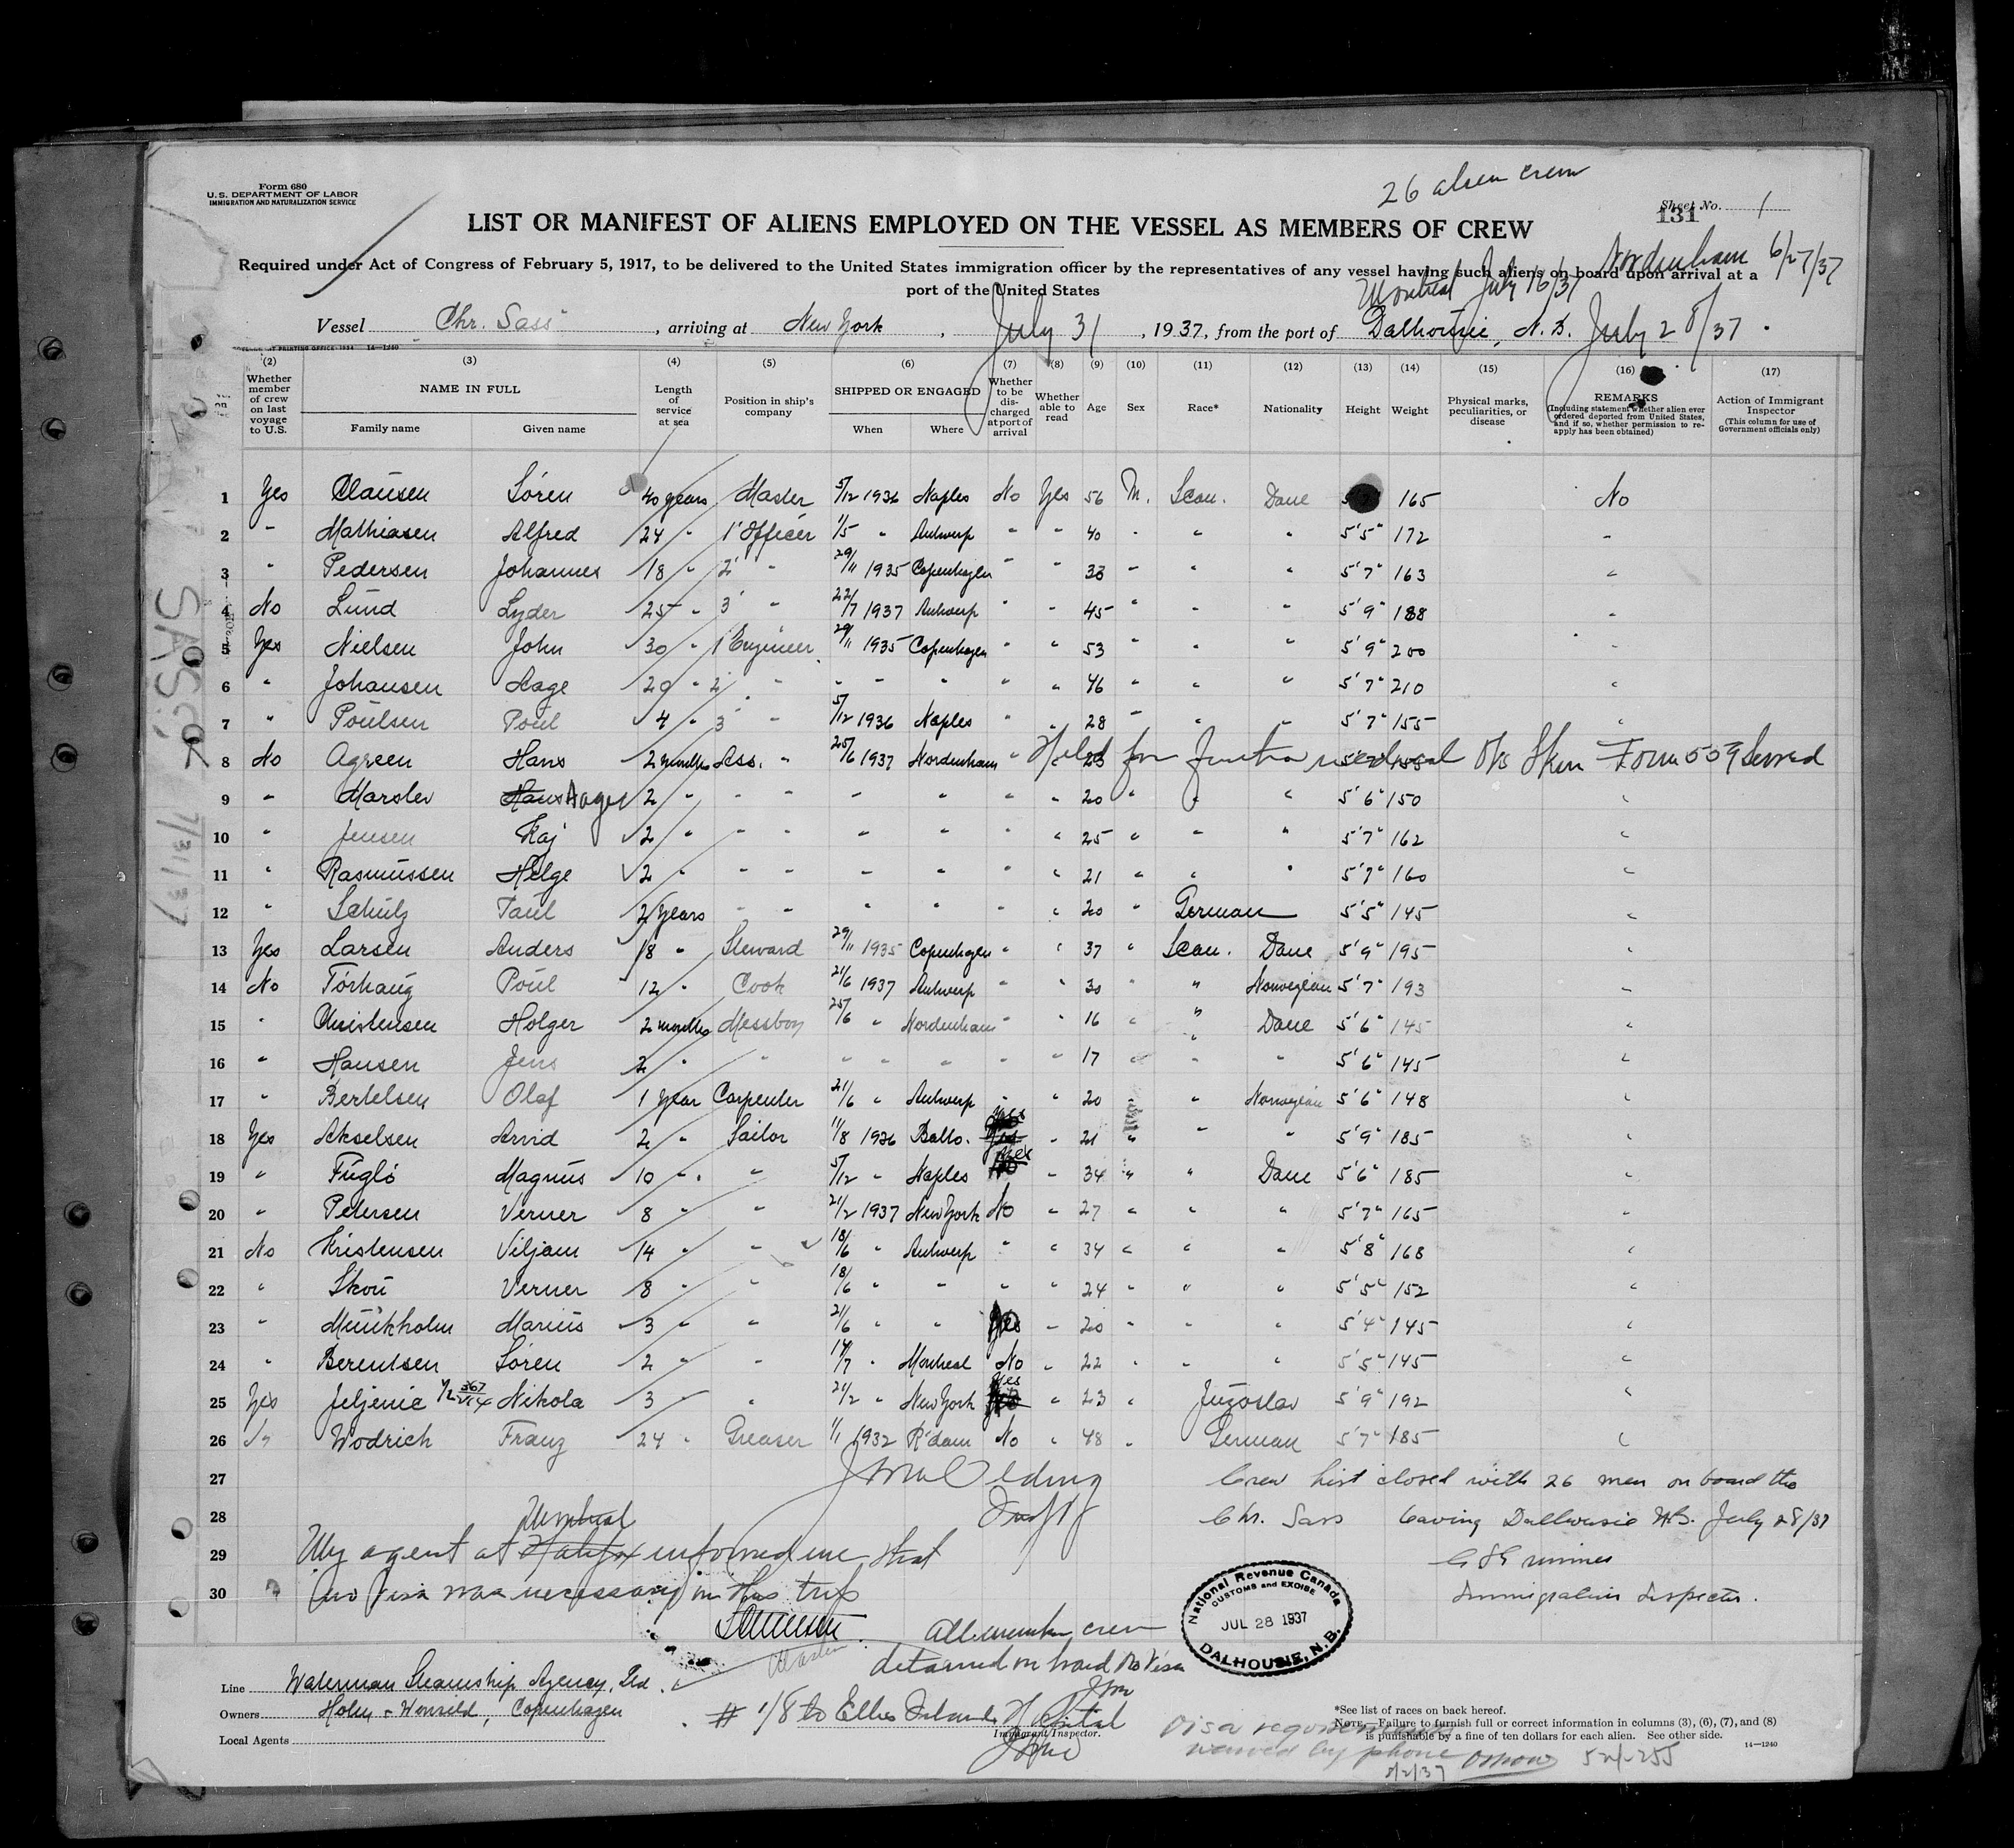 26 alien crew
Form 680
U. S. DEPARTMENT OF LABOR
IMMIGRATION AND NATURALIZATION SERVICE
Sheet No. 1
131
LIST OR MANIFEST OF ALIENS EMPLOYED ON THE VESSEL AS MEMBERS OF CREW
Nordenham 6/27/37
Required under Act of Congress of February 5, 1917, to be delivered to the United States immigration officer by the representatives of any vessel having such aliens on board upon arrival at a
port of the United States
Montreal July 16/37
Vessel Chr. Sass, arriving at New York, July 31, 1937, from the port of Dalhousie, N.B. July 28/37.
(2) (3) (4) (5) (6) (7) (8) (9) (10) (11) (12) (13) (14) (15) (16) (17)
Whether member of crew on last voyage to U.S. NAME IN FULL Family name Given name Length of service at sea Position in ship's company SHIPPED OR ENGAGED When Where Whether to be discharged at port of arrival Whether able to read Age Sex Race* Nationality Height Weight Physical marks, peculiarities, or disease REMARKS (Including statement whether alien ever ordered deported from United States, and if so, whether permission to reapply has been obtained) Action of Immigrant Inspector (This column for use of Government officials only)
1 Yes Clausen Sören 40 years Master 5/12 1936 Naples No Yes 56 M. Scan. Dane 165 No
2 " Mathiasen Alfred 24 " 1' Officer 1/5 " Antwerp " " 40 " " " 5'5" 172 "
3 " Pedersen Johannes 18 " 2' " 29/11 1935 Copenhagen " " 33 " " " 5'7" 163 "
4 No Lund Lyder 25 " 3' " 22/7 1937 Antwerp " " 45 " " " 5'9" 188 "
5 Yes Nielsen John 30 " 1' Engineer 29/11 1935 Copenhagen " " 53 " " " 5'9" 200 "
6 " Johansen Aage 20 " 2' " " " " " " 46 " " " 5'7" 210 "
7 " Poulsen Poul 4 " 3' " 5/12 1936 Naples " " 28 " " " 5'7" 155 "
8 No Agreen Hans 2 months Ass. " 25/6 1937 Nordenham " Held for further medical Form 509 Served
9 " Marslev Hans Aage 2 " " " " " " " 20 " " " 5'6" 150 "
10 " Jensen Kaj 2 " " " " " " " 25 " " " 5'7" 162 "
11 " Rasmussen Helge 2 " " " " " " " 21 " " " 5'7" 160 "
12 " Schulz Paul 2 years " " " " " " 20 " German 5'5" 145 "
13 Yes Larsen Anders 18 " Steward 29/11 1935 Copenhagen " " 37 " Scan. Dane 5'9" 195 "
14 No Torhaug Poul 12 " Cook 21/6 1937 Antwerp " " 30 " " Norwegian 5'7" 193 "
15 " Christensen Holger 2 months Messboy 25/6 " Nordenham " " 16 " " Dane 5'6" 145 "
16 " Hansen Jens 2 " " " " " " " 17 " " " 5'6" 145 "
17 " Bertelsen Olaf 1 year Carpenter 21/6 " Antwerp " " 20 " " Norwegian 5'6" 148 "
18 Yes Akselsen Arvid 2 " Sailor 11/8 1936 Balto. Yes " 21 " " " 5'9" 185 "
19 " Fuglö Magnus 10 " " 5/12 " Naples Yes " 34 " " Dane 5'6" 185 "
20 " Petersen Verner 8 " " 21/2 1937 New York No " 27 " " " 5'7" 165 "
21 No Kristensen Viljam 14 " " 18/6 " Antwerp " " 34 " " " 5'8" 168 "
22 " Skou Verner 8 " " 18/6 " " " " 24 " " " 5'5" 152 "
23 " Munkholm Marius 3 " " 21/6 " " " 20 " " " 5'4" 145 "
24 " Berentsen Sören 2 " " 14/7 " Montreal No " 22 " " " 5'5" 145 "
25 Yes Jeljenic Nikola 3 " " 21/2 " New York Yes " 23 " Jugoslav 5'9" 192 "
26 Wodrich Franz 24 " Greaser 1/1 1932 R'dam No " 48 " German 5'7" 185 "
27 Crew list closed with 26 men on board the
28 Chr. Sass leaving Dalhousie N.B. July 28/37
Montreal
29 My agent at Halifax informed me that
30 no visa was necessary on this trip
Immigration Inspector.
Master
All member crew
detained on board no visa
National Revenue Canada
CUSTOMS and EXCISE
JUL 28 1937
DALHOUSIE, N.B.
Line Waterman Steamship Agency, Ltd.
Owners Holm & Wonsild, Copenhagen
Local Agents
# 1/8 to Ellis Island Hospital
Immigrant Inspector.
*See list of races on back hereof.
NOTE.—Failure to furnish full or correct information in columns (3), (6), (7), and (8)
is punishable by a fine of ten dollars for each alien. See other side.
14—1240
Visa requirements
waived by phone
8/2/37
SASS
7/31/37